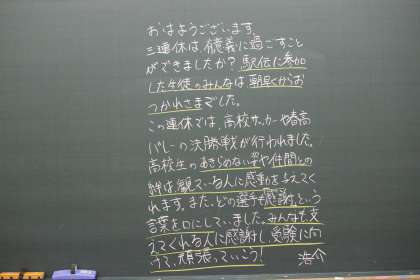 おはようございます。
三連休は、有意義に過ごすこと
ができましたか？駅伝に参加
した生徒のみんなは朝早くからお
つかれさまでした。
この連休では、高校サッカーや春高
バレーの決勝戦が行われました。
高校生のあきらめない姿や仲間との
絆は観ている人に感動を与えてく
れます。また、どの選手も感謝という
言葉を口にしていました。みんなも支
えてくれる人に感謝し、受験に向
って、頑張っていこう！
浩介